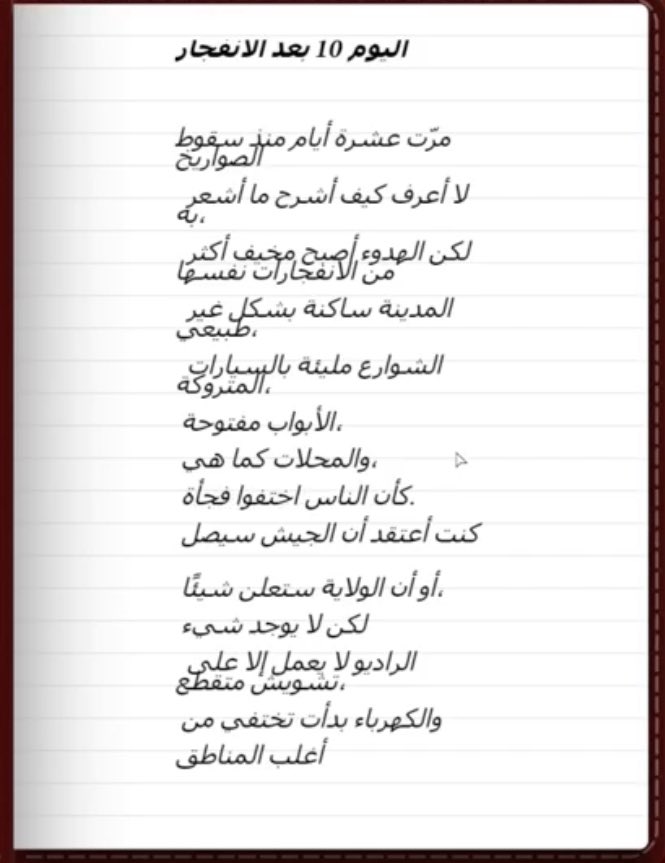 اليوم 10 بعد الانفجار
مرّت عشرة أيام منذ سقوط
الصواريخ
لا أعرف كيف أشرح ما أشعر
به،
لكن الهدوء أصبح مخيف أكثر
من الانفجارات نفسها
المدينة ساكنة بشكل غير
طبيعي،
الشوارع مليئة بالسيارات
المتروكة،
الأبواب مفتوحة،
والمحلات كما هي،
كأن الناس اختفوا فجأة.
كنت أعتقد أن الجيش سيصل
أو أن الولاية ستعلن شيئًا،
لكن لا يوجد شيء
الراديو لا يعمل إلا على
تشويش متقطع،
والكهرباء بدأت تختفي من
أغلب المناطق